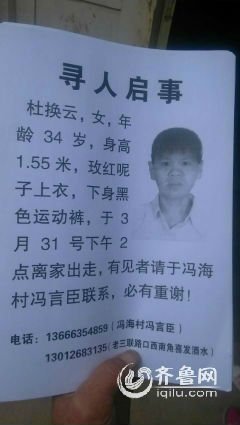 寻人启事
杜换云，女，年
龄 34 岁，身高
1.55 米，玫红呢
子上衣，下身黑
色运动裤，于 3
月 31 号下午 2
点离家出走，有见者请于冯海
村冯言臣联系，必有重谢！
电话：13666354859（冯海村冯言臣）
13012683135（老三联路口西南角喜发酒水）
齐鲁网
iqilu.com